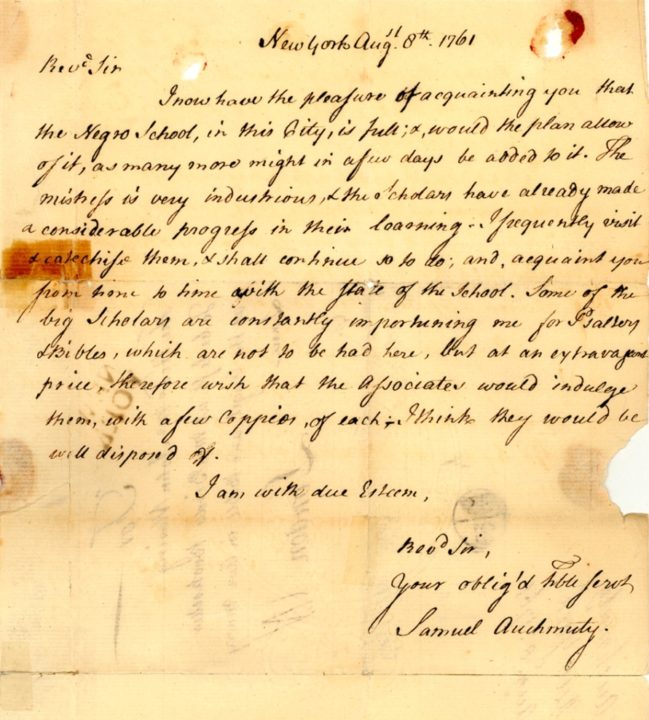 New York Augst. 8th. 1761
Revd Sir
I now have the pleasure of acquainting you that
the Negro School, in this City, is full; &, would the plan allow
of it, as many more might in a few days be added to it. The
mistress is very industrious, & the Scholars have already made
a considerable progress in their learning. I frequently visit
& catechise them, & shall continue so to do; and, acquaint you
from time to time with the state of the School. Some of the
big Scholars are constantly importuning me for Psalters
& Bibles, which are not to be had here, but at an extravagant
price, therefore wish that the Associates would indulge
them, with a few Coppies, of each; I think they would be
well disposd of.
I am with due Esteem,
Revd Sir,
Your oblig'd Hble Servt
Samuel Auchmuty.